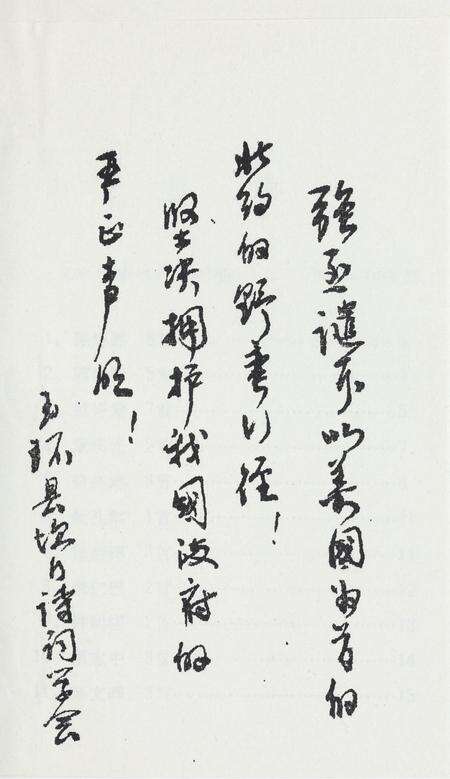 强烈谴责以美國为首的
北约的野蛮行径！
坚决拥护我國政府的
严正声明！
玉环县坎门诗词学会